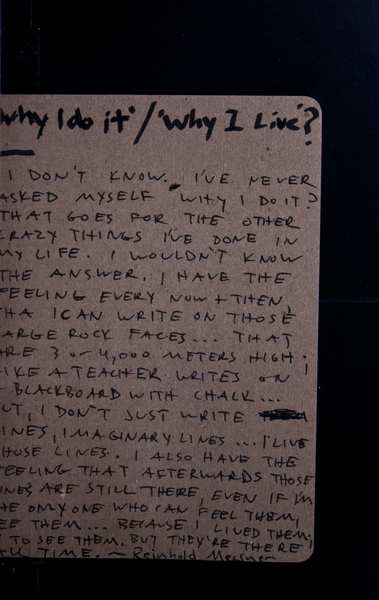 Why I do it'/'Why I Live'?
I DON'T KNOW. I'VE NEVER
ASKED MYSELF 'WHY I DO IT?
THAT GOES FOR THE OTHER
CRAZY THINGS I'VE DONE IN
MY LIFE. I WOULDN'T KNOW
THE ANSWER. I HAVE THE
FEELING EVERY NOW + THEN,
THA I CAN WRITE ON THOSE
LARGE ROCK FACES... THAT
ARE 3 or 4,000 METERS HIGH;
LIKE A TEACHER WRITES ON
BLACKBOARD WITH CHALK...
UT, I DON'T JUST WRITE
INES, IMAGINARY LINES... I LIVE
HOSE LINES. I ALSO HAVE THE
FEELING THAT AFTERWARDS THOSE
INES ARE STILL THERE, EVEN IF I'M
HE ONLY ONE WHO CAN FEEL THEM,
EE THEM... BECAUSE I LIVED THEM.
TO SEE THEM. BUT THEY'RE THERE
ALL TIME. ~ Reinhold Messner